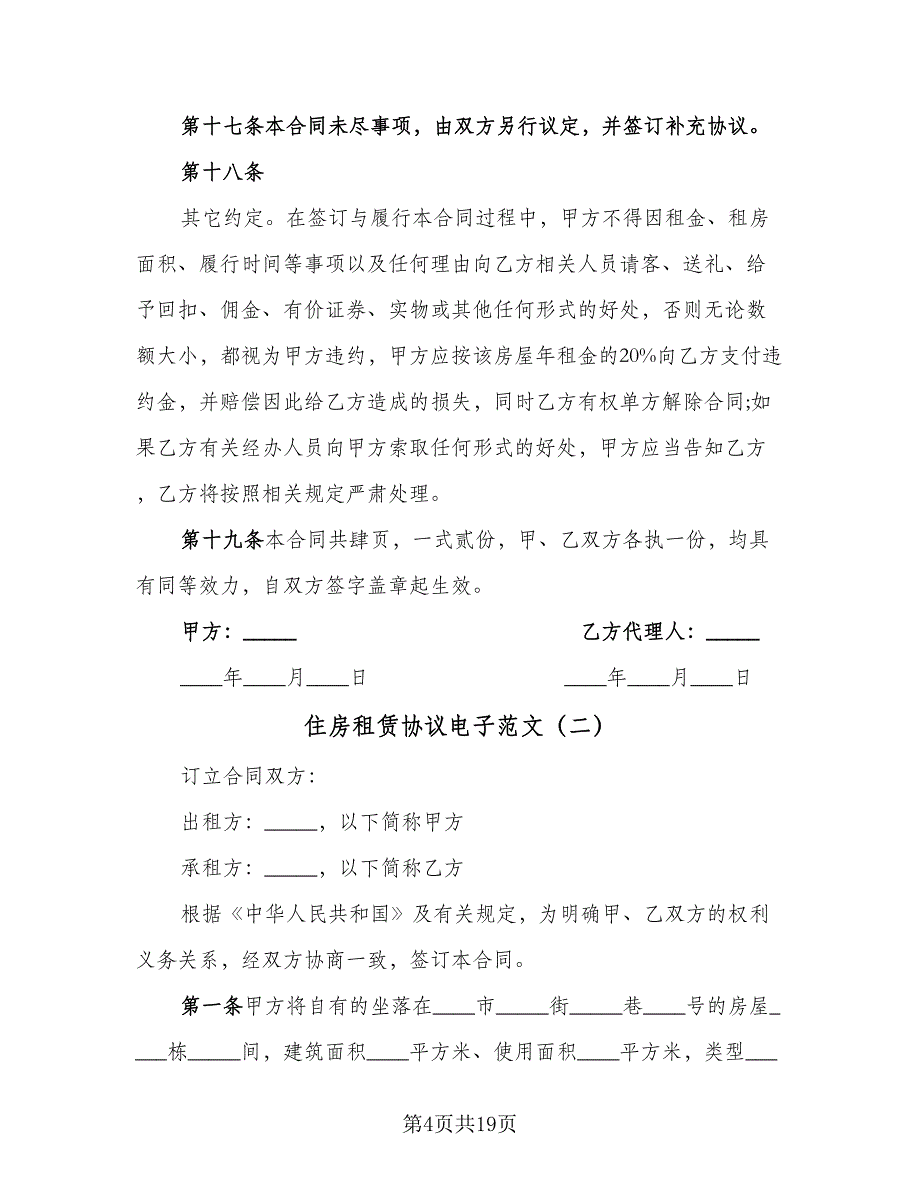 第十七条本合同未尽事项，由双方另行议定，并签订补充协议。
第十八条
其它约定。在签订与履行本合同过程中，甲方不得因租金、租房
面积、履行时间等事项以及任何理由向乙方相关人员请客、送礼、给
予回扣、佣金、有价证券、实物或其他任何形式的好处，否则无论数
额大小，都视为甲方违约，甲方应按该房屋年租金的20%向乙方支付违
约金，并赔偿因此给乙方造成的损失，同时乙方有权单方解除合同;如
果乙方有关经办人员向甲方索取任何形式的好处，甲方应当告知乙方
，乙方将按照相关规定严肃处理。
第十九条本合同共肆页，一式贰份，甲、乙双方各执一份，均具
有同等效力，自双方签字盖章起生效。
甲方：_____ 乙方代理人：_____
____年____月____日 ____年____月____日
住房租赁协议电子范文（二）
订立合同双方：
出租方：_____，以下简称甲方
承租方：_____，以下简称乙方
根据《中华人民共和国》及有关规定，为明确甲、乙双方的权利
义务关系，经双方协商一致，签订本合同。
第一条甲方将自有的坐落在____市_____街_____巷____号的房屋_
___栋_____间，建筑面积____平方米、使用面积____平方米，类型___
第4页共19页